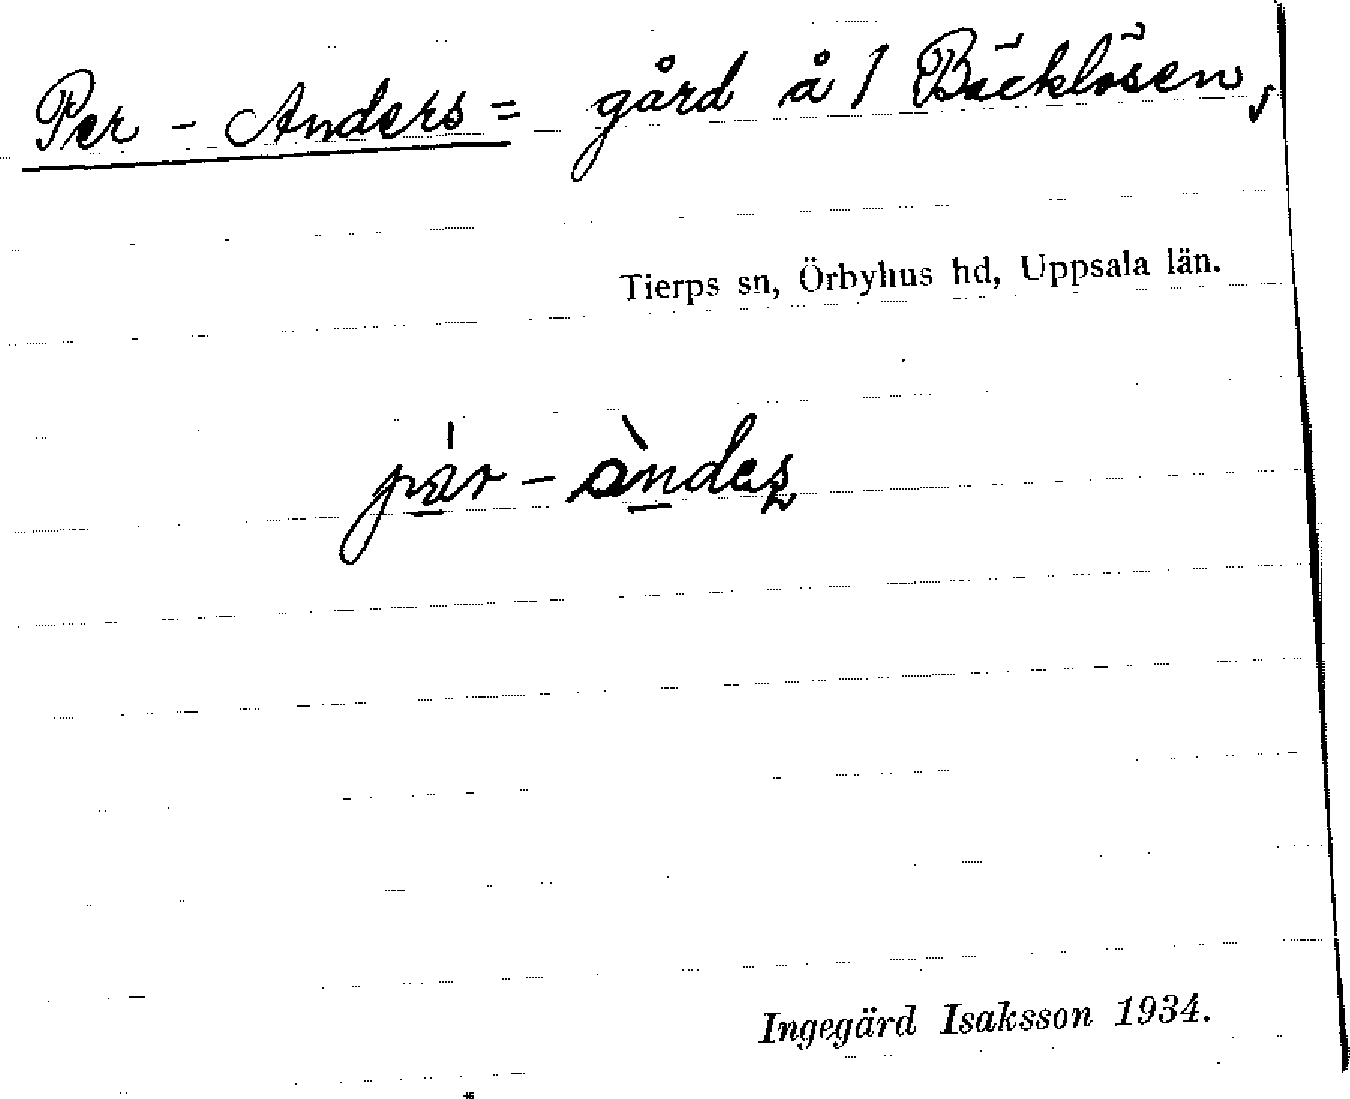 Per - Anders = gård å 1 Bäcklösen,
Tierps sn, Örbyhus hd, Uppsala län.
Ingegärd Isaksson 1934.